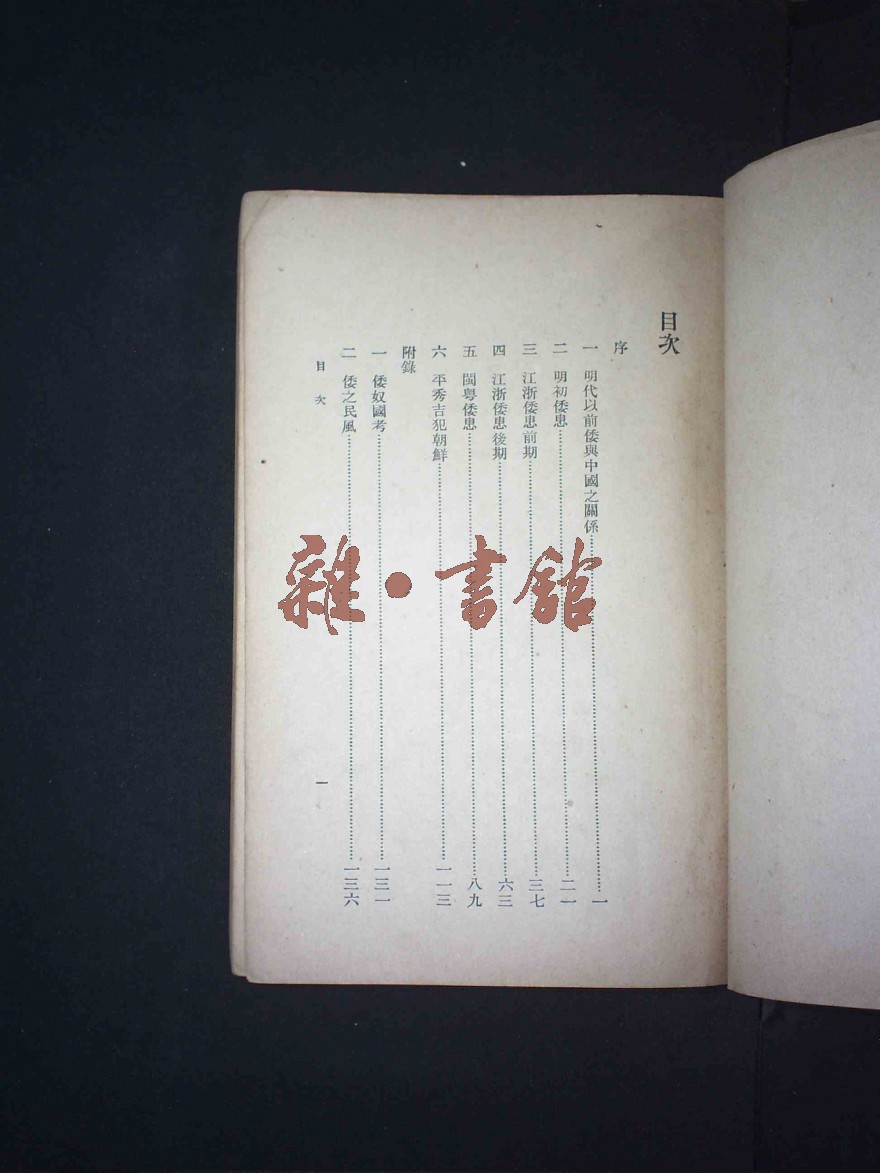 目次
序
一　明代以前倭與中國之關係……一
二　明初倭患……二一
三　江浙倭患前期……三七
四　江浙倭患後期……六三
五　閩粤倭患……八九
六　平秀吉犯朝鮮……一一三
附錄
一　倭奴國考……一三一
二　倭之民風……一三六
目次　一
雜·書館